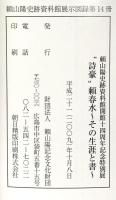 頼山陽史跡資料館展示図録第14冊
頼山陽史跡資料館開館十四周年記念特別展
“詩豪”頼春水〜その生涯と書〜
平成二十一(二〇〇九)年十月八日
発行 財団法人 頼山陽記念文化財団
〒七三〇-〇〇三六 広島市中区袋町五番十五号
電話 〇八二-五四二-七〇二二
印刷 朝日精版印刷株式会社